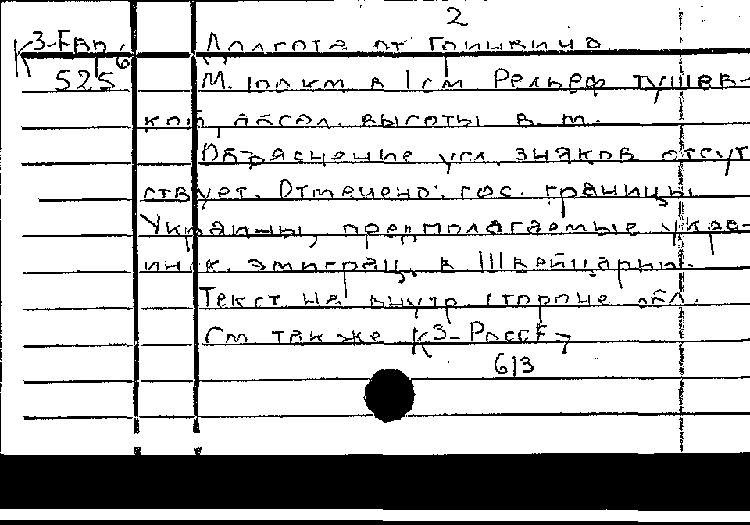 2
К 3-Евр. 6 Долгота от Гринвича
525 М. 100 км в 1 см Рельеф тушев-
кой, абсол. высоты в м.
Объяснение усл. знаков отсут
ствует. Отмечено: гос. границы
Украины, предполагаемые укра-
инск. эмиграц. в Швейцарии.
Текст на внутр. стороне обл.
См также К 3-РоссЕ 7
613